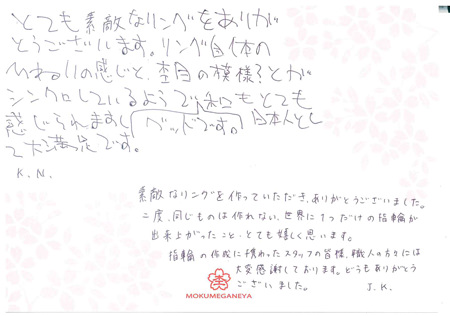 とても素敵なリングをありが
とうございます。リング自体の
ひねりの感じと、杢目の模様?とが
シンクロしているようで和もとても
感じられますし グッドです。日本人とし
て大満足です。
K.N.
素敵なリングを作っていただき、ありがとうございました。
二度、同じものは作れない、世界に1つだけの指輪が
出来上がったこと、とても嬉しく思います。
指輪の作成に携わったスタッフの皆様、職人の方々には
大変感謝しております。どうもありがとう
ございました。 J.K.
MOKUMEGANEYA